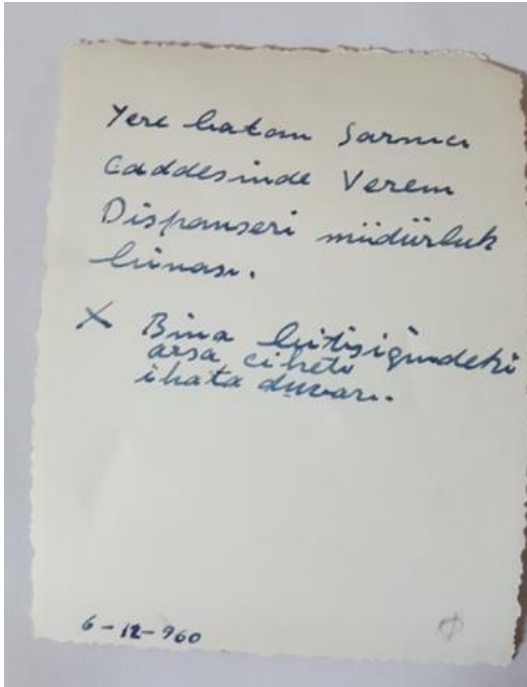 Yere batan Sarnıcı
Caddesinde Verem
Dispanseri müdürlük
binası.
X Bina bitişiğindeki
arsa ciheti
ihata duvarı.
6-12-960